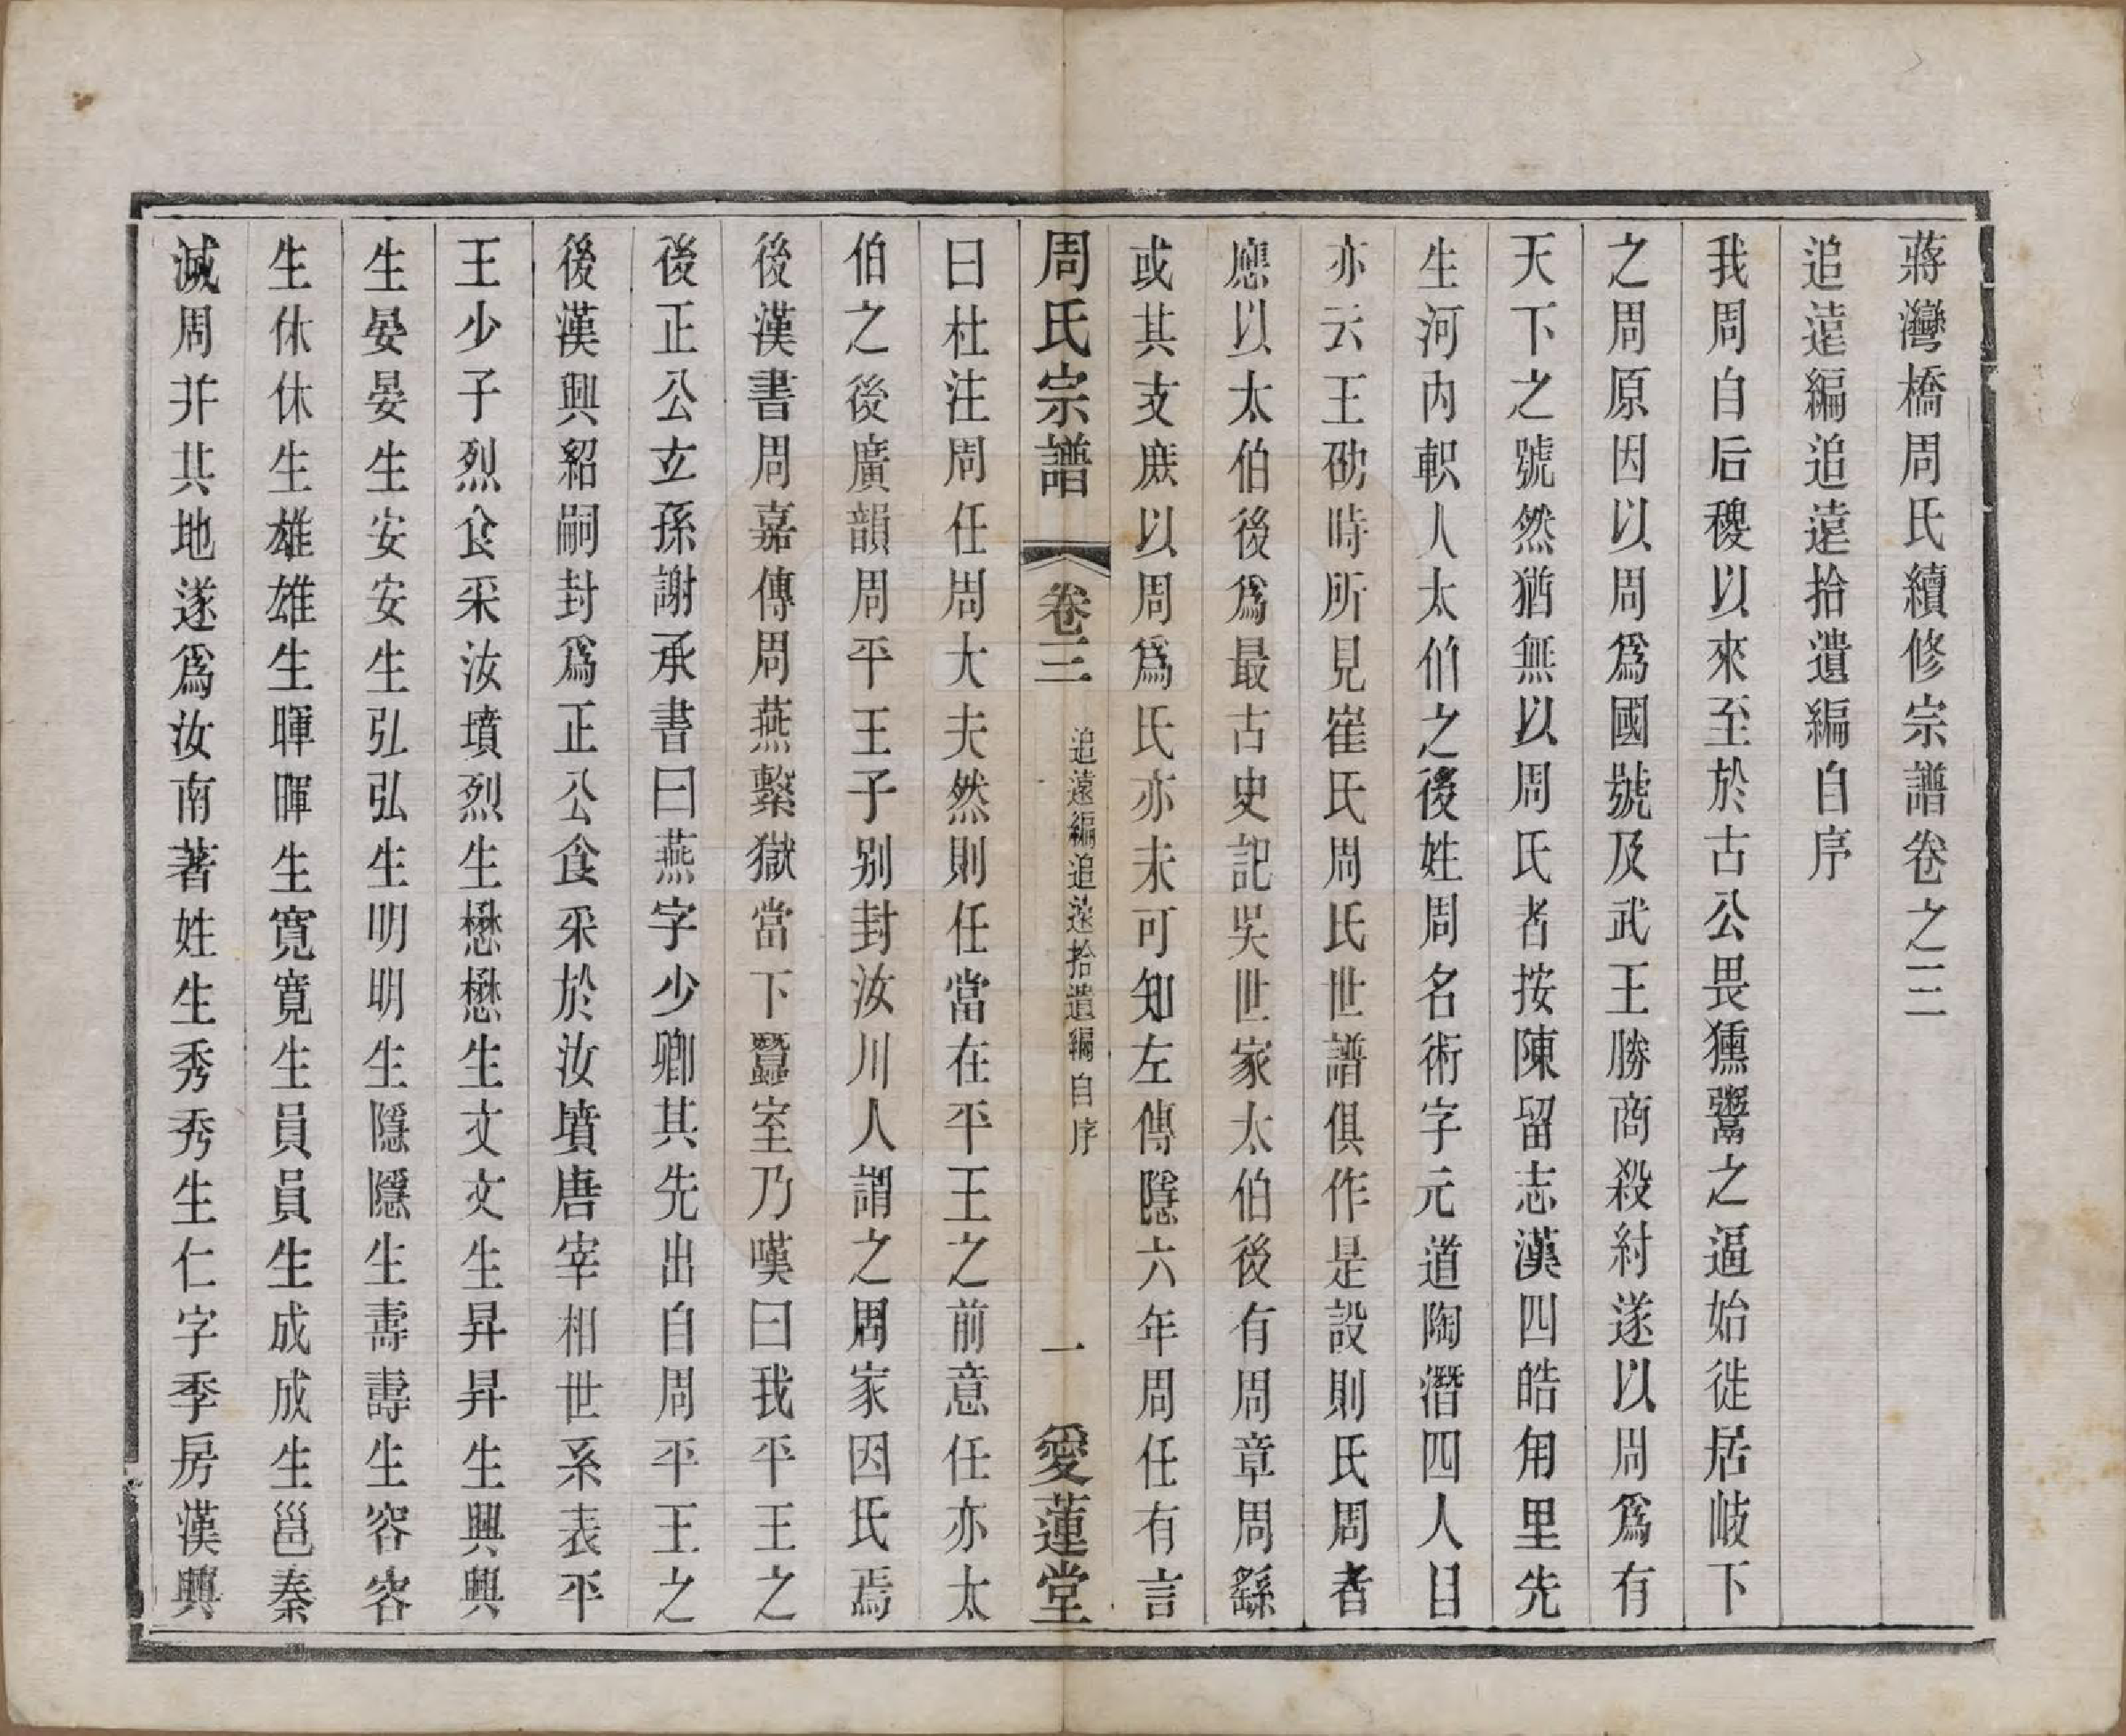 蔣灣橋周氏續修宗譜卷之三
追遠編追遠拾遺編自序
我周自后稷以來至於古公畏獯鬻之逼始徙居岐下
之周原因以周爲國號及武王勝商殺紂遂以周爲有
天下之號然猶無以周氏者按陳留志漢四皓甪里先
生河內軹人太伯之後姓周名術字元道陶潛四人目
亦云王劭時所見崔氏周氏世譜俱作是設則氏周者
應以太伯後爲最古史記吳世家太伯後有周章周繇
或其支庶以周爲氏亦未可知左傳隱六年周任有言
周氏宗譜 卷三 追遠編追遠拾遺編自序 一 愛蓮堂
曰杜注周任周大夫然則任當在平王之前意任亦太
伯之後廣韻周平王子別封汝川人謂之周家因氏焉
後漢書周嘉傳周燕繫獄當下蠶室乃嘆曰我平王之
後正公玄孫謝承書曰燕字少卿其先出自周平王之
後漢興紹嗣封爲正公食采於汝墳唐宰相世系表平
王少子烈食采汝墳烈生懋懋生文文生昇昇生興興
生晏晏生安安生弘弘生明明生隱隱生壽壽生容容
生休休生雄雄生暉暉生寬寬生員員生成成生邕秦
滅周并其地遂爲汝南著姓生秀秀生仁字季房漢興